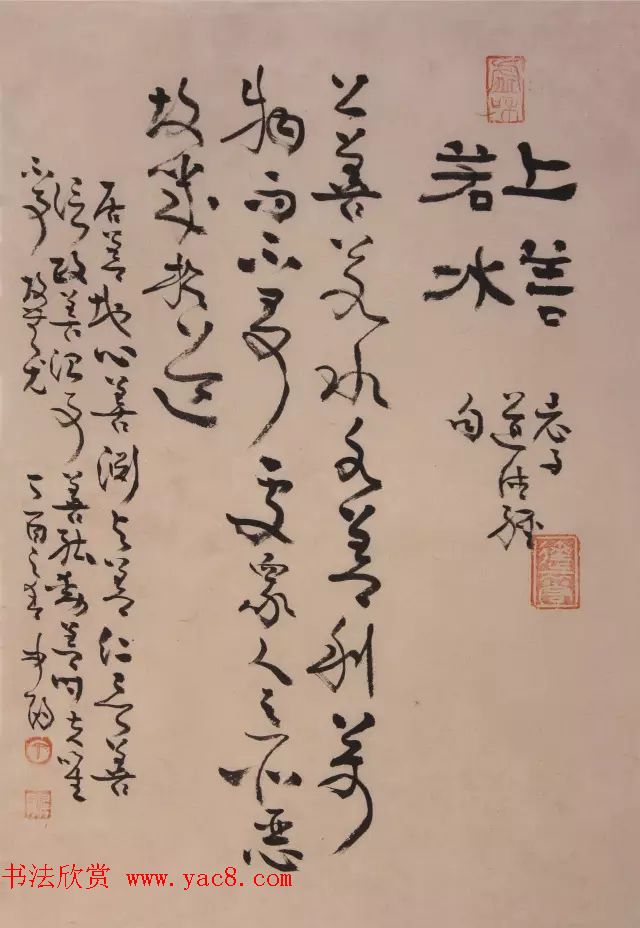 上善
若水
老子
道德經
句
上善若水水善利萬
物而不爭處衆人之所惡
故幾於道
居善地心善渊与善仁言善
信政善治事善能動善时夫唯
不爭故無尤
丁酉之春
书法欣赏 www.yac8.com